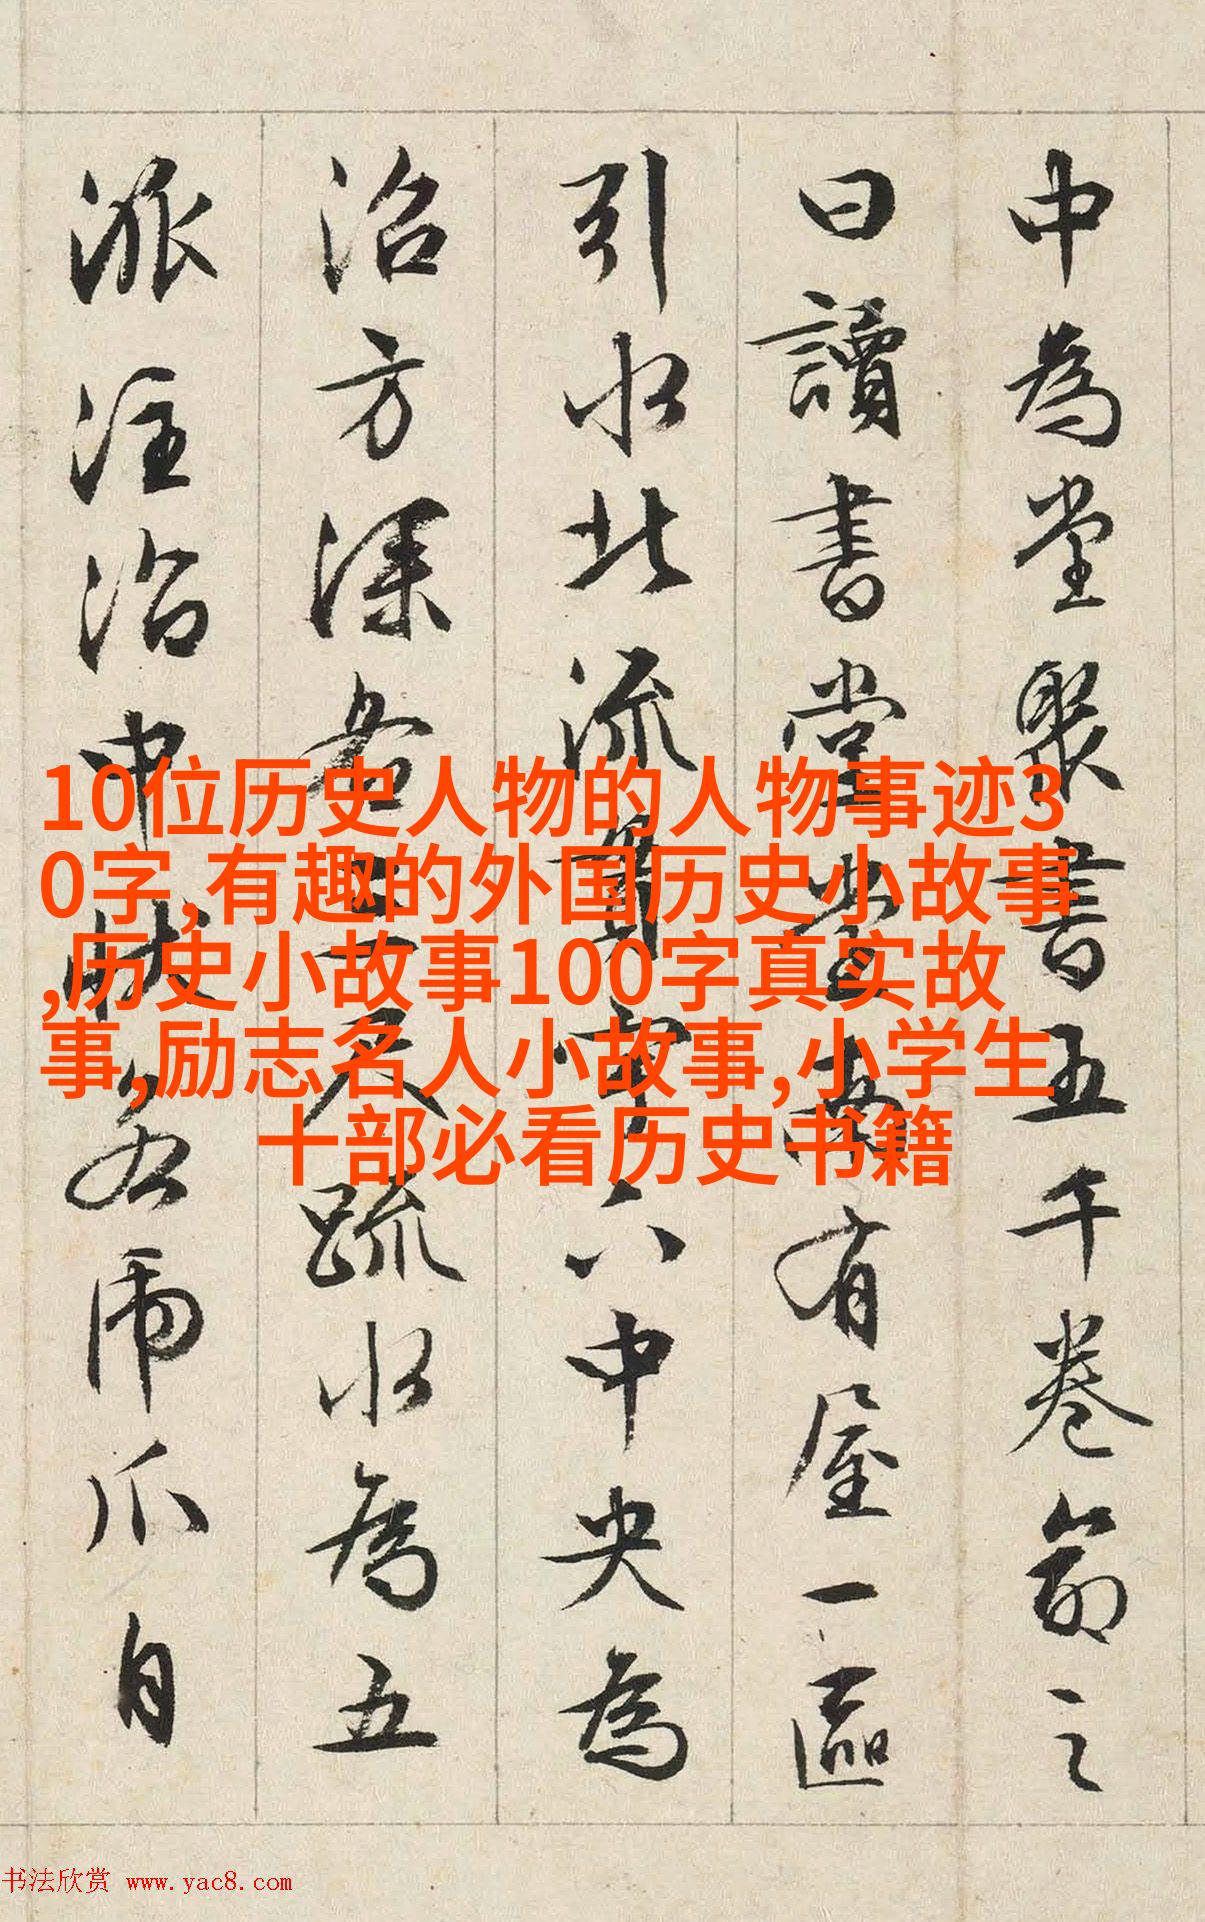 中為堂聚書五千卷命之
曰讀書堂堂南有屋一區
引水北流貫宇下中央為
沼方深各三尺疏水為五
派注沼中狀若虎爪自
10位历史人物的人物事迹3
0字,有趣的外国历史小故事
,历史小故事100字真实故
事,励志名人小故事,小学生
十部必看历史书籍
书法欣赏 www.yac8.com